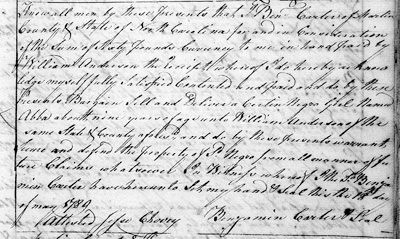 Know all men by these presents that I Benj.n Carter of Martin
County & State of North Carolina for and in Consideration
of the Sum of Sixty pounds Currency to me in hand paid by
William Anderson the Receipt whereof I do hereby acknow
ledge myself fully Satisfied Contented and paid and do by these
Presents Bargain Sell and Deliver a Certin Negro Girl Named
Abba about nine years of age unto William Anderson of the
same State & County aforesd and do by these presents warrant
and defend the property of sd Negro from all manner of
Claims whatsoever In Witness whereof I the sd Benja
min Carter have hereunto Set my hand & Seal this the day
of may 1789
Attested Jesse Cherry Benjamin Carter Seal